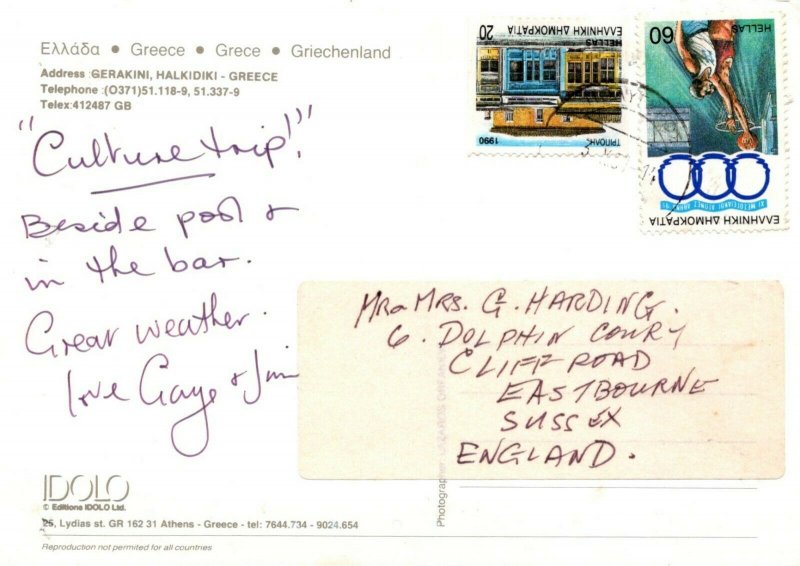 Ελλάδα • Greece • Grece • Griechenland
Address :GERAKINI, HALKIDIKI - GREECE
Telephone :(O371)51.118-9, 51.337-9
Telex:412487 GB
20
ΕΛΛΗΝΙΚΗ ΔΗΜΟΚΡΑΤΙΑ
HELLAS
ΤΡΙΠΟΛΗ
1990
60
HELLAS
ΕΛΛΗΝΙΚΗ ΔΗΜΟΚΡΑΤΙΑ
"Culture trip!"
Beside pool &
in the bar.
Great weather.
love Gaye & Jim
MR & MRS. G. HARDING.
6. DOLPHIN COURT
CLIFF ROAD
EASTBOURNE
SUSSEX
ENGLAND.
Photographer
IDOLO
© Editions IDOLO Ltd.
25, Lydias st. GR 162 31 Athens - Greece - tel: 7644.734 - 9024.654
Reproduction not permited for all countries